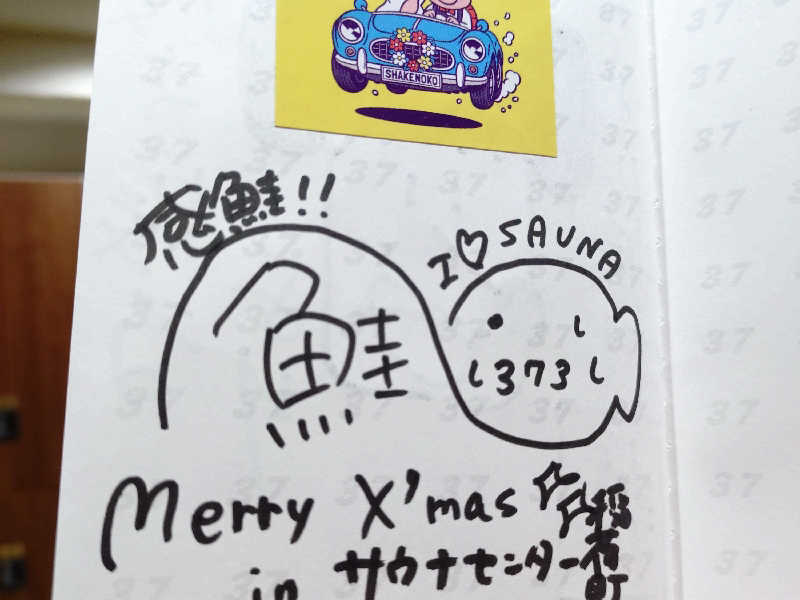 SHAKENOKO
感鮭!!
I♡SAUNA
鮭
し
し373し
Merry X'mas
in サウナセンター稲荷町